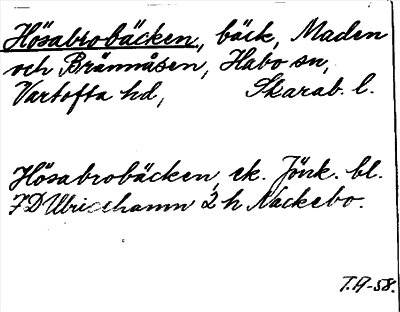 Hösabrobäcken, bäck, Maden
och Brännåsen, Habo sn,
Vartofta hd, Skarab. l.
Hösabrobäcken, ek. Jönk. bl.
7D Ulricehamn 2 h Näckebo.
T.A-58.